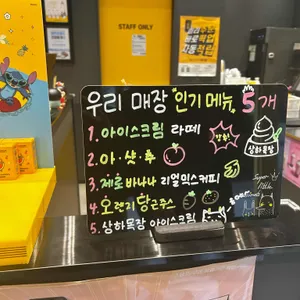 STAFF ONLY
우리 매장 "인기 메뉴" 5개
1. 아이스크림 라떼
2. 아·샷·추
3. 제로 바나나 리얼믹스커피
4. 오렌지 당근주스
5. 상하목장 아이스크림
상하목장
Super
Milk